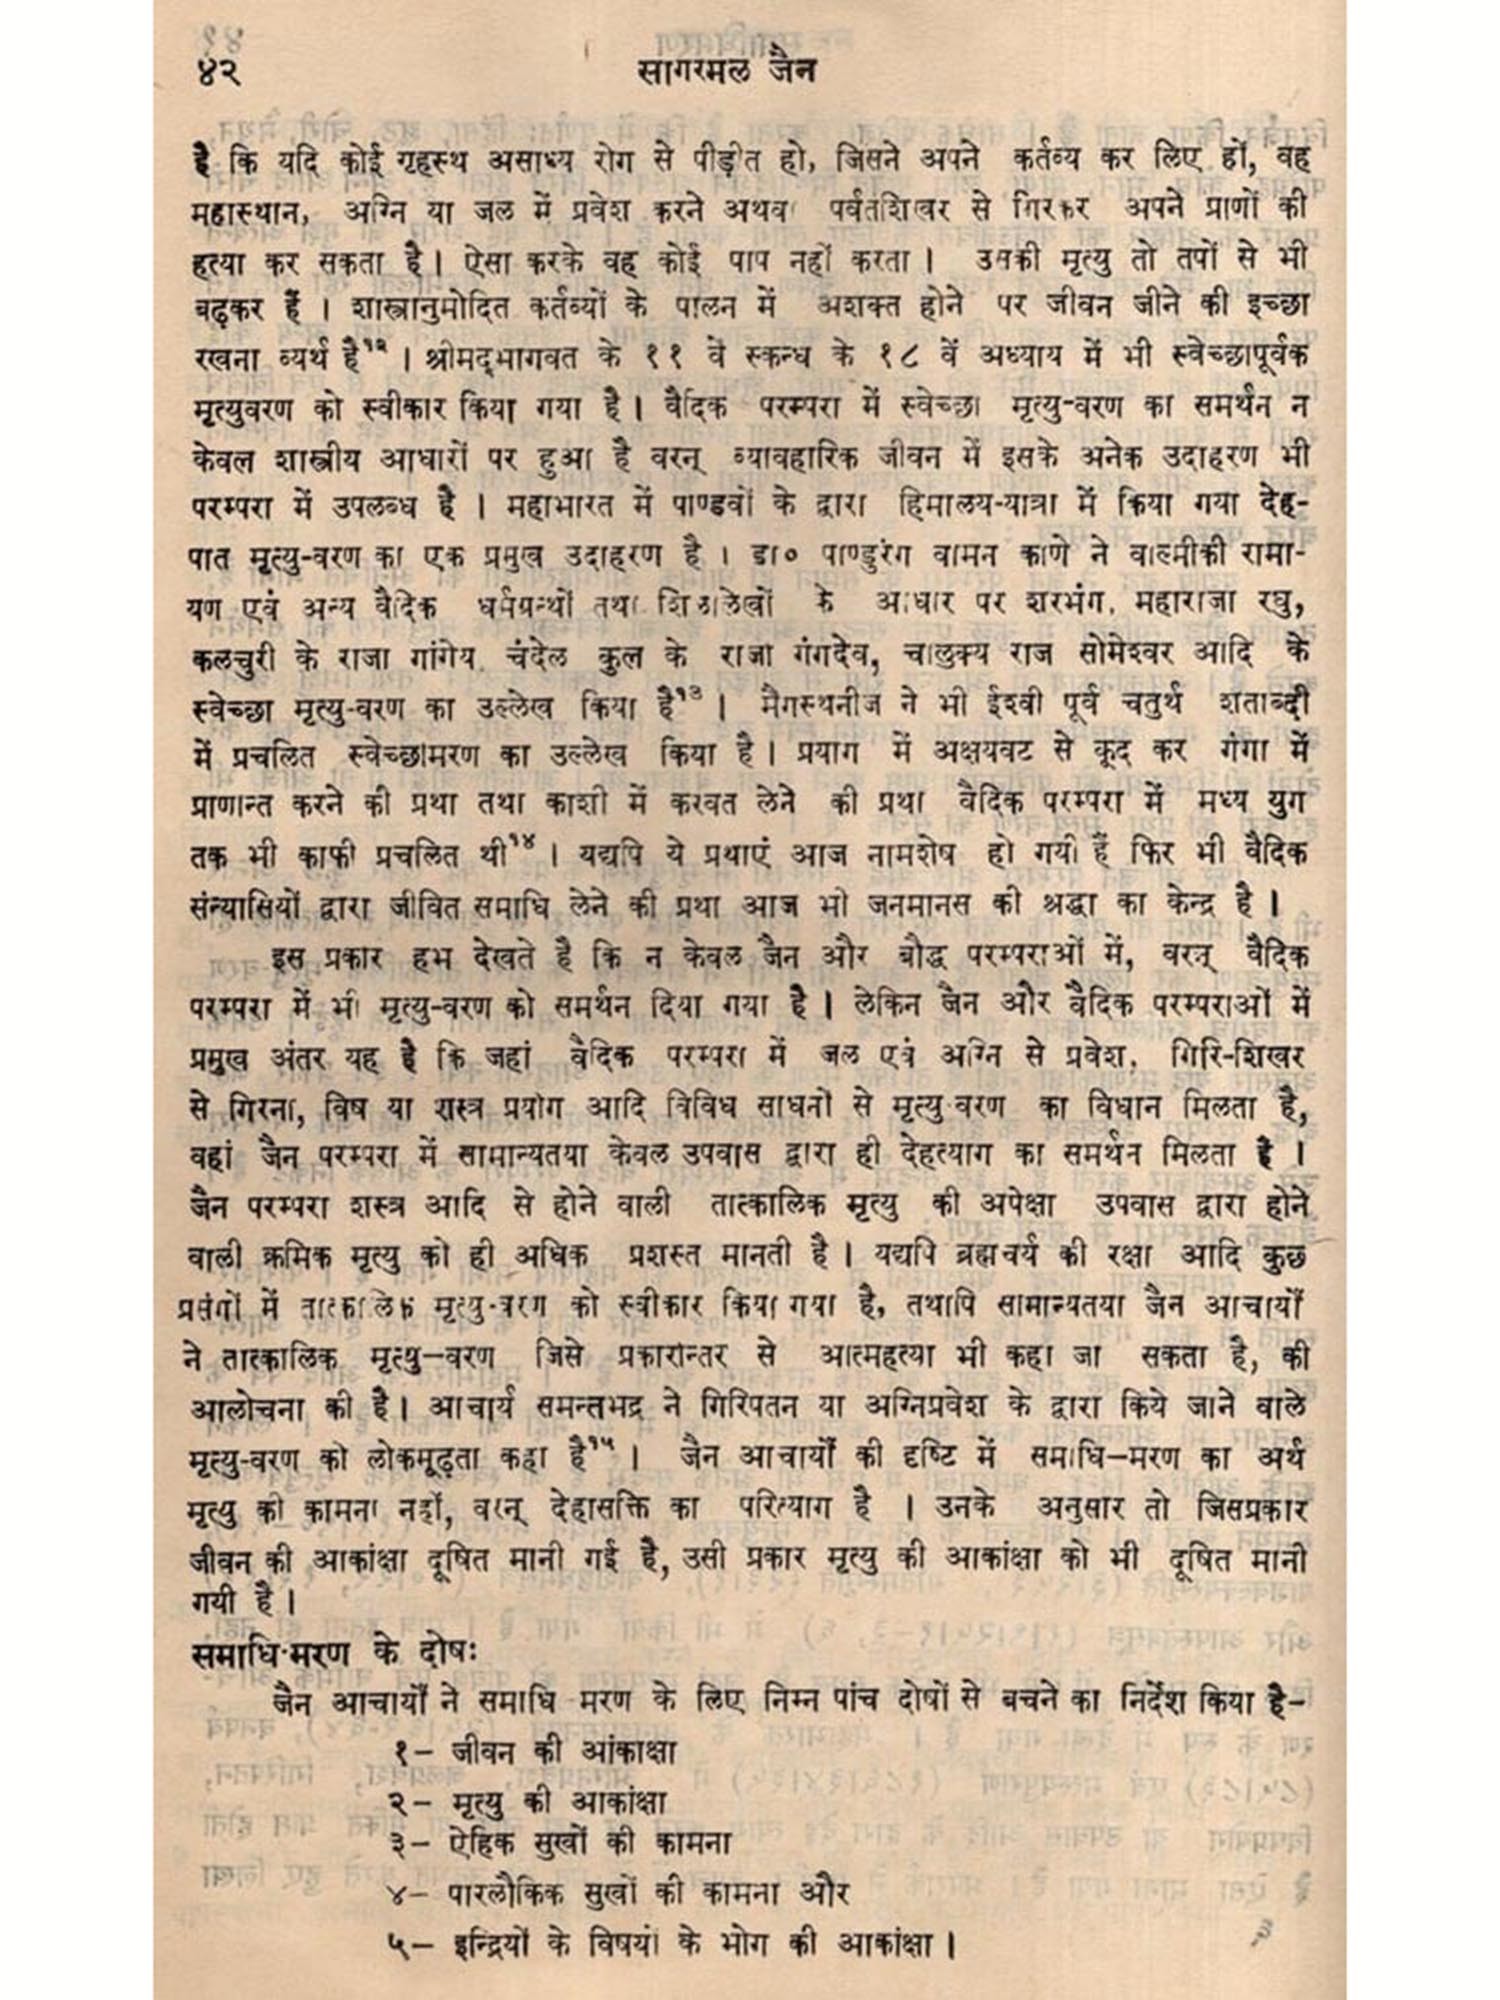 ४२
सागरमल जैन
है कि यदि कोई गृहस्थ असाध्य रोग से पीड़ीत हो, जिसने अपने कर्तव्य कर लिए हों, वह
महास्थान, अग्नि या जल में प्रवेश करने अथवा पर्वतशिखर से गिरकर अपने प्राणों की
हत्या कर सकता है। ऐसा करके वह कोई पाप नहीं करता। उसकी मृत्यु तो तपों से भी
बढ़कर हैं । शास्त्रानुमोदित कर्तव्यों के पालन में अशक्त होने पर जीवन जीने की इच्छा
रखना व्यर्थ है१२ । श्रीमद्भागवत के ११ वे स्कन्ध के १८ वें अध्याय में भी स्वेच्छापूर्वक
मृत्युवरण को स्वीकार किया गया है। वैदिक परम्परा में स्वेच्छा मृत्यु-वरण का समर्थन न
केवल शास्त्रीय आधारों पर हुआ है वरन् व्यावहारिक जीवन में इसके अनेक उदाहरण भी
परम्परा में उपलब्ध है । महाभारत में पाण्डवों के द्वारा हिमालय-यात्रा में किया गया देह-
पात मृत्यु-वरण का एक प्रमुख उदाहरण है । डा० पाण्डुरंग वामन काणे ने वाल्मीकी रामा-
यण एवं अन्य वैदिक धर्मग्रन्थों तथा शिलालेखों के आधार पर शरभंग, महाराजा रघु,
कलचुरी के राजा गांगेय, चंदेल कुल के राजा गंगदेव, चालुक्य राज सोमेश्वर आदि के
स्वेच्छा मृत्यु-वरण का उल्लेख किया है१३ । मैगस्थनीज ने भी ईश्वी पूर्व चतुर्थ शताब्दी
में प्रचलित स्वेच्छामरण का उल्लेख किया है। प्रयाग में अक्षयवट से कूद कर गंगा में
प्राणान्त करने की प्रथा तथा काशी में करवत लेने की प्रथा वैदिक परम्परा में मध्य युग
तक भी काफी प्रचलित थी१४ । यद्यपि ये प्रथाएं आज नामशेष हो गयी हैं फिर भी वैदिक
संन्यासियों द्वारा जीवित समाधि लेने की प्रथा आज भी जनमानस की श्रद्धा का केन्द्र है ।
इस प्रकार हभ देखते है कि न केवल जैन और बौद्ध परम्पराओं में, वरन् वैदिक
परम्परा में भी मृत्यु-वरण को समर्थन दिया गया है । लेकिन जैन और वैदिक परम्पराओं में
प्रमुख अंतर यह है कि जहां वैदिक परम्परा में जल एवं अग्नि से प्रवेश, गिरि-शिखर
से गिरना, विष या शस्त्र प्रयोग आदि विविध साधनों से मृत्यु-वरण का विधान मिलता है,
वहां जैन परम्परा में सामान्यतया केवल उपवास द्वारा ही देहत्याग का समर्थन मिलता है ।
जैन परम्परा शस्त्र आदि से होने वाली तात्कालिक मृत्यु की अपेक्षा उपवास द्वारा होने
वाली क्रमिक मृत्यु को ही अधिक प्रशस्त मानती है । यद्यपि ब्रह्मचर्य की रक्षा आदि कुछ
प्रसंगों में तात्कालिक मृत्यु-वरण को स्वीकार किया गया है, तथापि सामान्यतया जैन आचार्यों
ने तात्कालिक मृत्यु-वरण जिसे प्रकारान्तर से आत्महत्या भी कहा जा सकता है, की
आलोचना की है। आचार्य समन्तभद्र ने गिरिपतन या अग्निप्रवेश के द्वारा किये जाने वाले
मृत्यु-वरण को लोकमूढ़ता कहा है१५ । जैन आचार्यों की दृष्टि में समाधि-मरण का अर्थ
मृत्यु की कामना नहीं, वरन् देहासक्ति का परित्याग है । उनके अनुसार तो जिसप्रकार
जीवन की आकांक्षा दूषित मानी गई है, उसी प्रकार मृत्यु की आकांक्षा को भी दूषित मानी
गयी है ।
समाधि-मरण के दोषः
जैन आचार्यों ने समाधि मरण के लिए निम्न पांच दोषों से बचने का निर्देश किया है-
१- जीवन की आंकाक्षा
२- मृत्यु की आकांक्षा
३- ऐहिक सुखों की कामना
४- पारलौकिक सुखों की कामना और
५- इन्द्रियों के विषयों के भोग की आकांक्षा ।